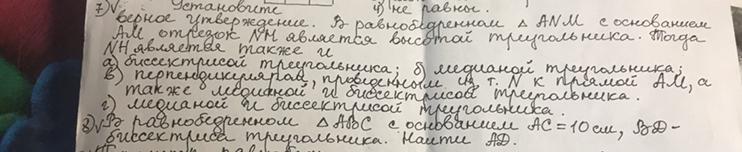 7) Установите г) не равны.
верное утверждение. В равнобедренном △ ANM с основанием
AM отрезок NH является высотой треугольника. Тогда
NH является также и
а) биссектрисой треугольника; б) медианой треугольника;
в) перпендикуляром, проведенным из т. N к прямой AM, а
также медианой и биссектрисой треугольника.
г) медианой и биссектрисой треугольника.
8) В равнобедренном △ ABC с основанием AC = 10 см, BD -
биссектриса треугольника. Найти AD.